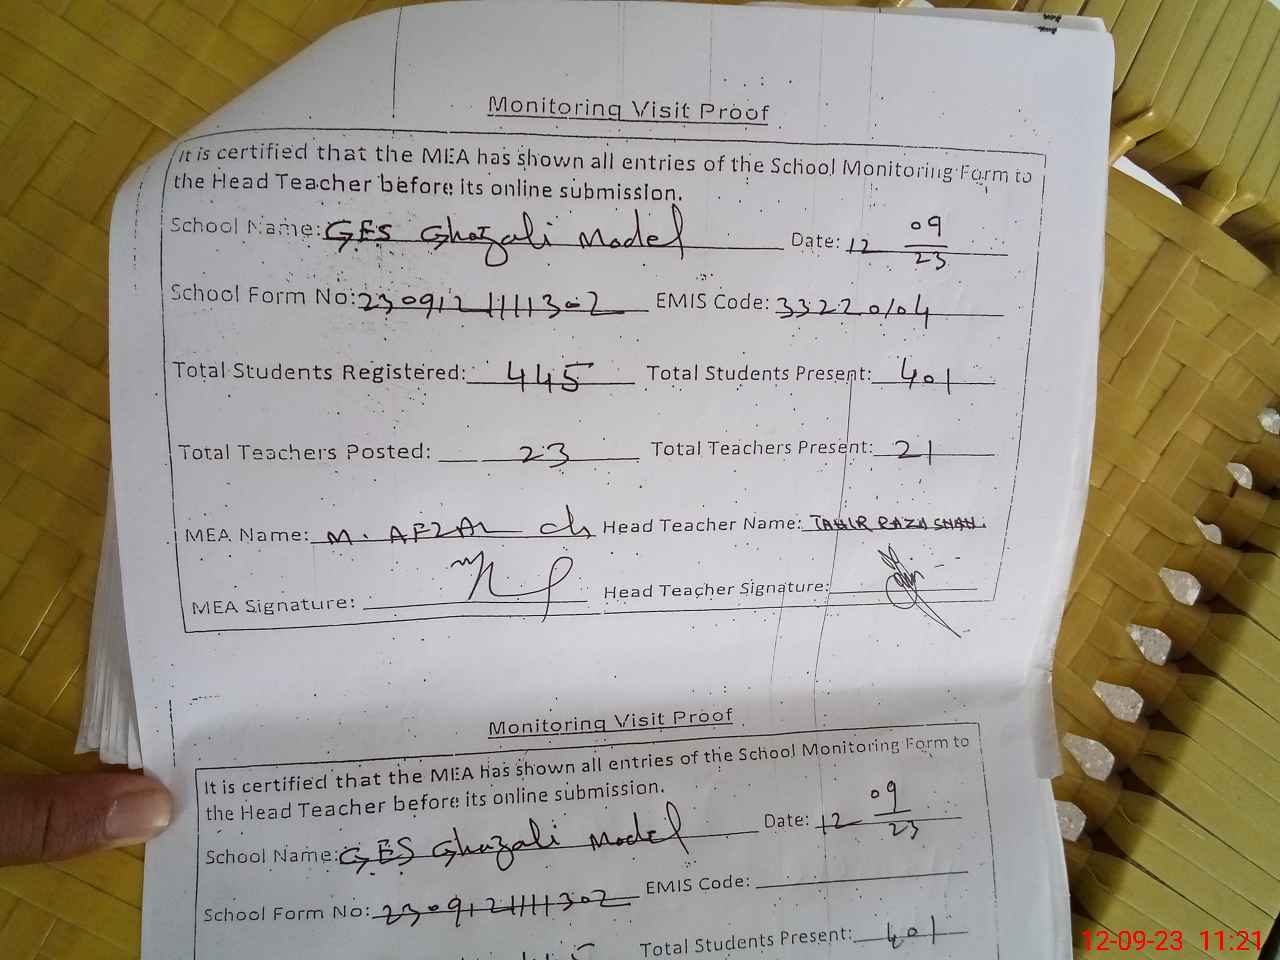 Monitoring Visit Proof
It is certified that the MEA has shown all entries of the School Monitoring Form to
the Head Teacher before its online submission.
School Name: GES Ghazali Model Date: 12 09/23
School Form No: 2309121111302 EMIS Code: 33220104
Total Students Registered: 445 Total Students Present: 401
Total Teachers Posted: 23 Total Teachers Present: 21
MEA Name: M. AFZAL ch Head Teacher Name: TAHIR RAZA SHAH.
MEA Signature: Head Teacher Signature:
Monitoring Visit Proof
It is certified that the MEA has shown all entries of the School Monitoring Form to
the Head Teacher before its online submission.
School Name: GES Ghazali Model Date: 12 09/23
School Form No: 2309121111302 EMIS Code:
Total Students Present: 401
12-09-23 11:21